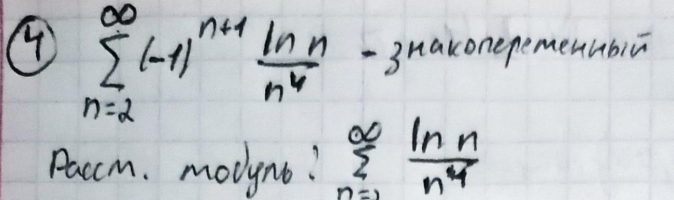 ④ ∞ ∑ n=2 (-1)^{n+1} ln n / n^4 - знакопеременный
Рассм. модуль: ∞ ∑ n=2 ln n / n^4